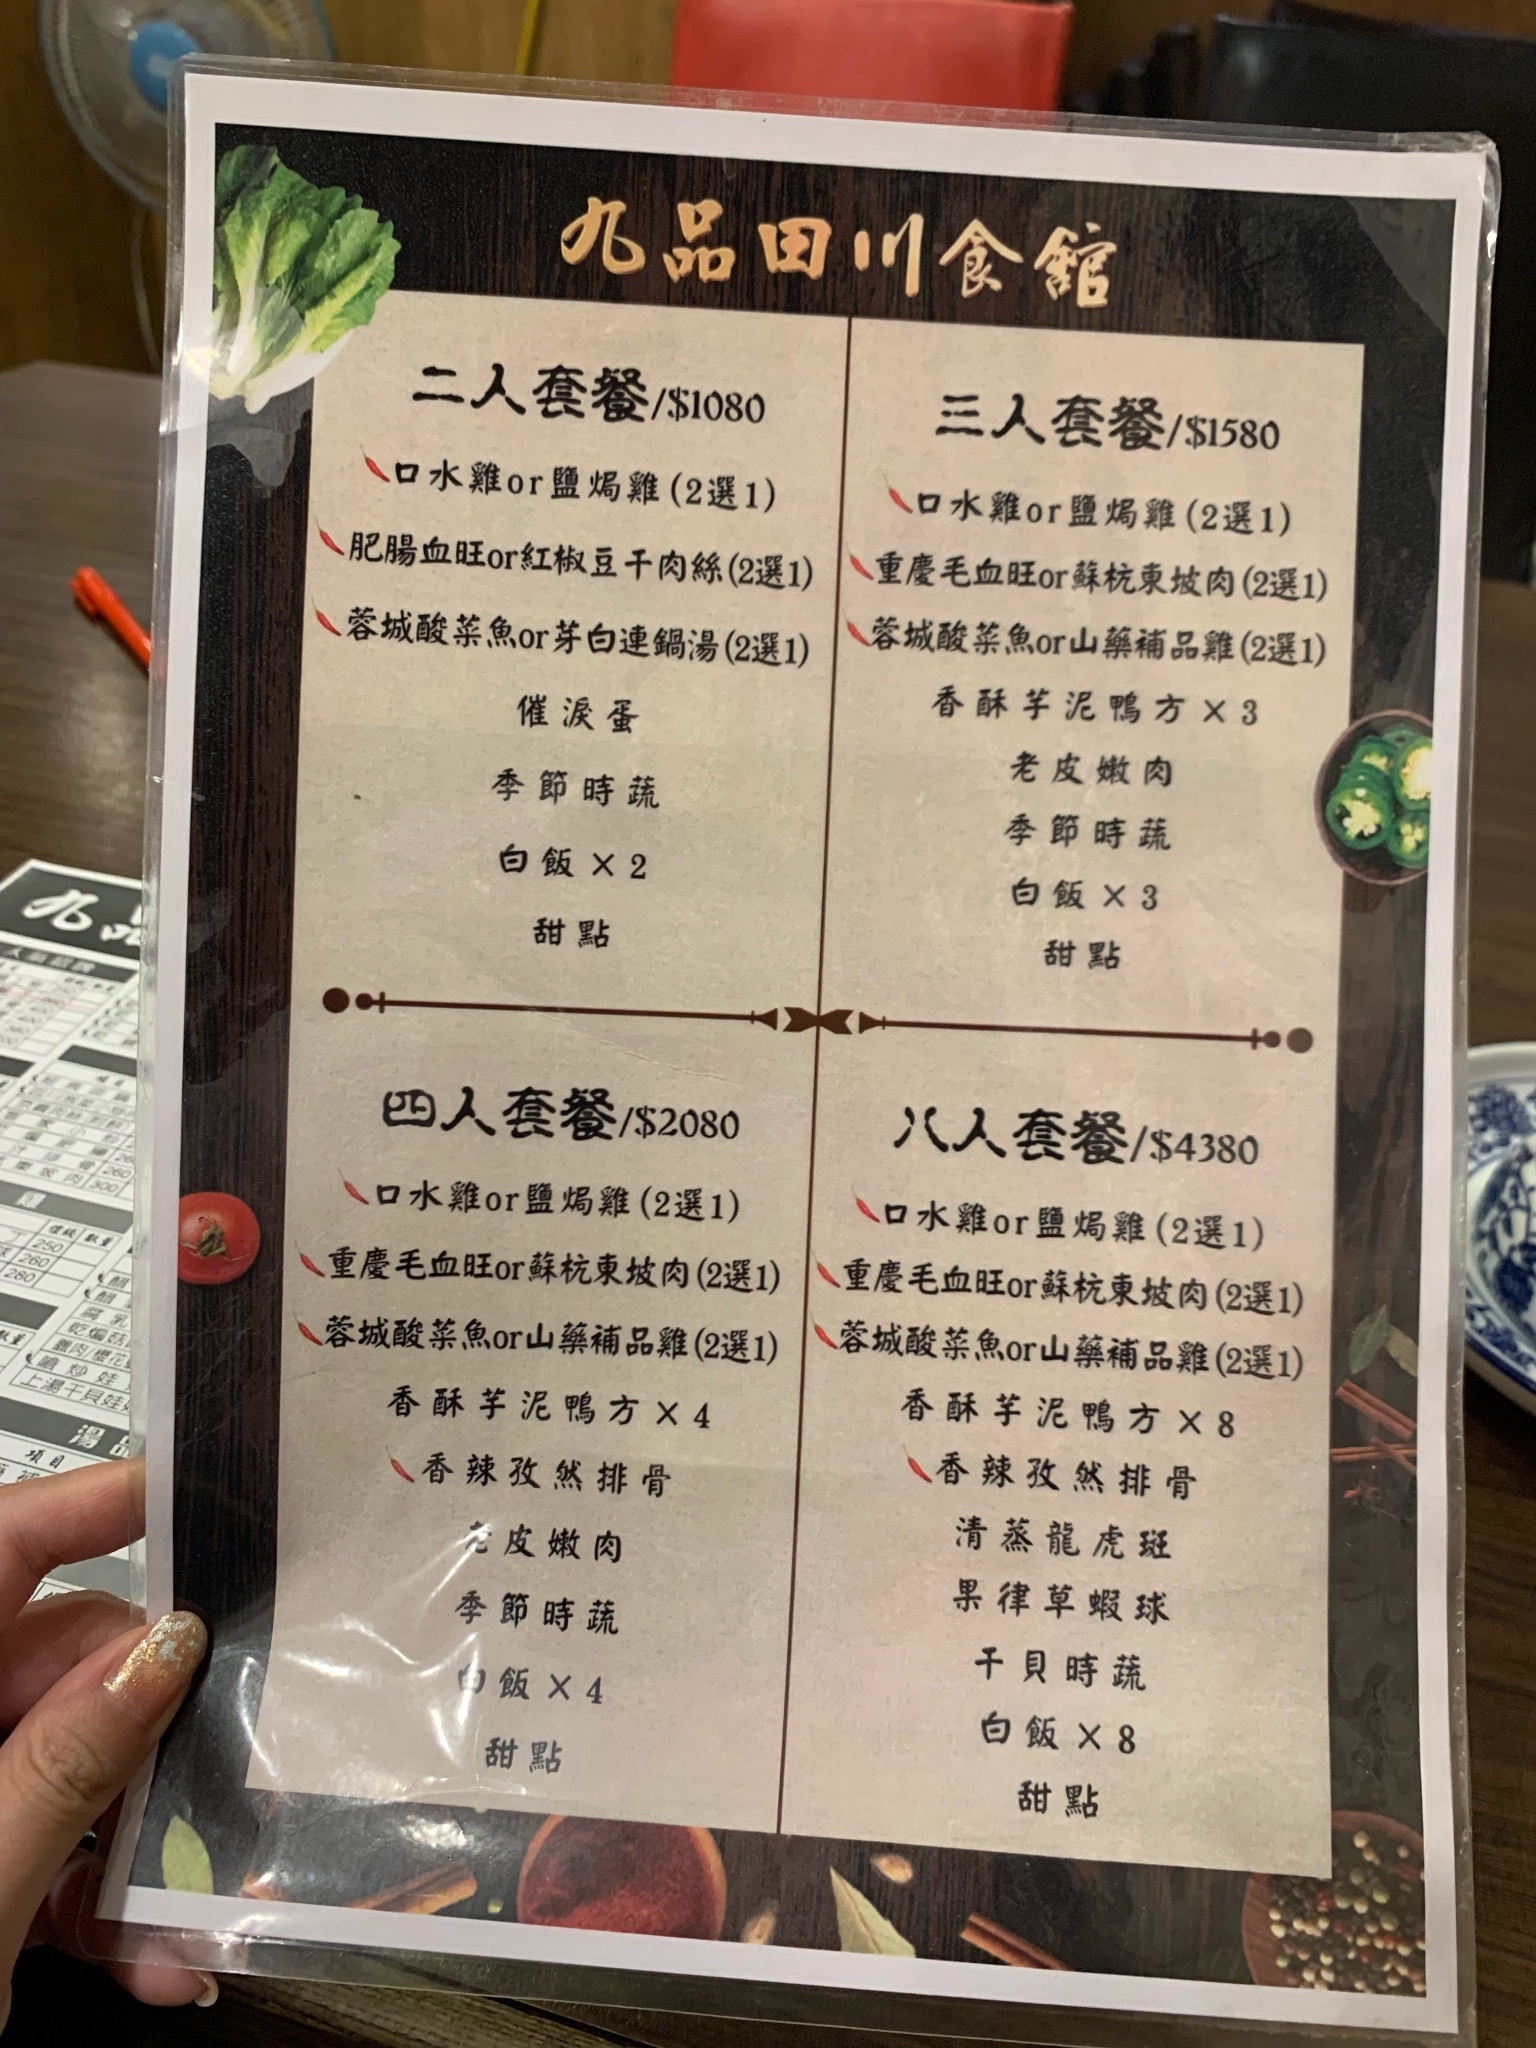 九品田川食館
二人套餐/$1080
口水雞or鹽焗雞(2選1)
肥腸血旺or紅椒豆干肉絲(2選1)
蓉城酸菜魚or芽白連鍋湯(2選1)
催淚蛋
季節時蔬
白飯×2
甜點
三人套餐/$1580
口水雞or鹽焗雞(2選1)
重慶毛血旺or蘇杭東坡肉(2選1)
蓉城酸菜魚or山藥補品雞(2選1)
香酥芋泥鴨方×3
老皮嫩肉
季節時蔬
白飯×3
甜點
四人套餐/$2080
口水雞or鹽焗雞(2選1)
重慶毛血旺or蘇杭東坡肉(2選1)
蓉城酸菜魚or山藥補品雞(2選1)
香酥芋泥鴨方×4
香辣孜然排骨
老皮嫩肉
季節時蔬
白飯×4
甜點
八人套餐/$4380
口水雞or鹽焗雞(2選1)
重慶毛血旺or蘇杭東坡肉(2選1)
蓉城酸菜魚or山藥補品雞(2選1)
香酥芋泥鴨方×8
香辣孜然排骨
清蒸龍虎斑
果律草蝦球
干貝時蔬
白飯×8
甜點
九品
人氣招牌
260
300
價錢 數量
250
260
260
上湯干貝娃
湯
項目